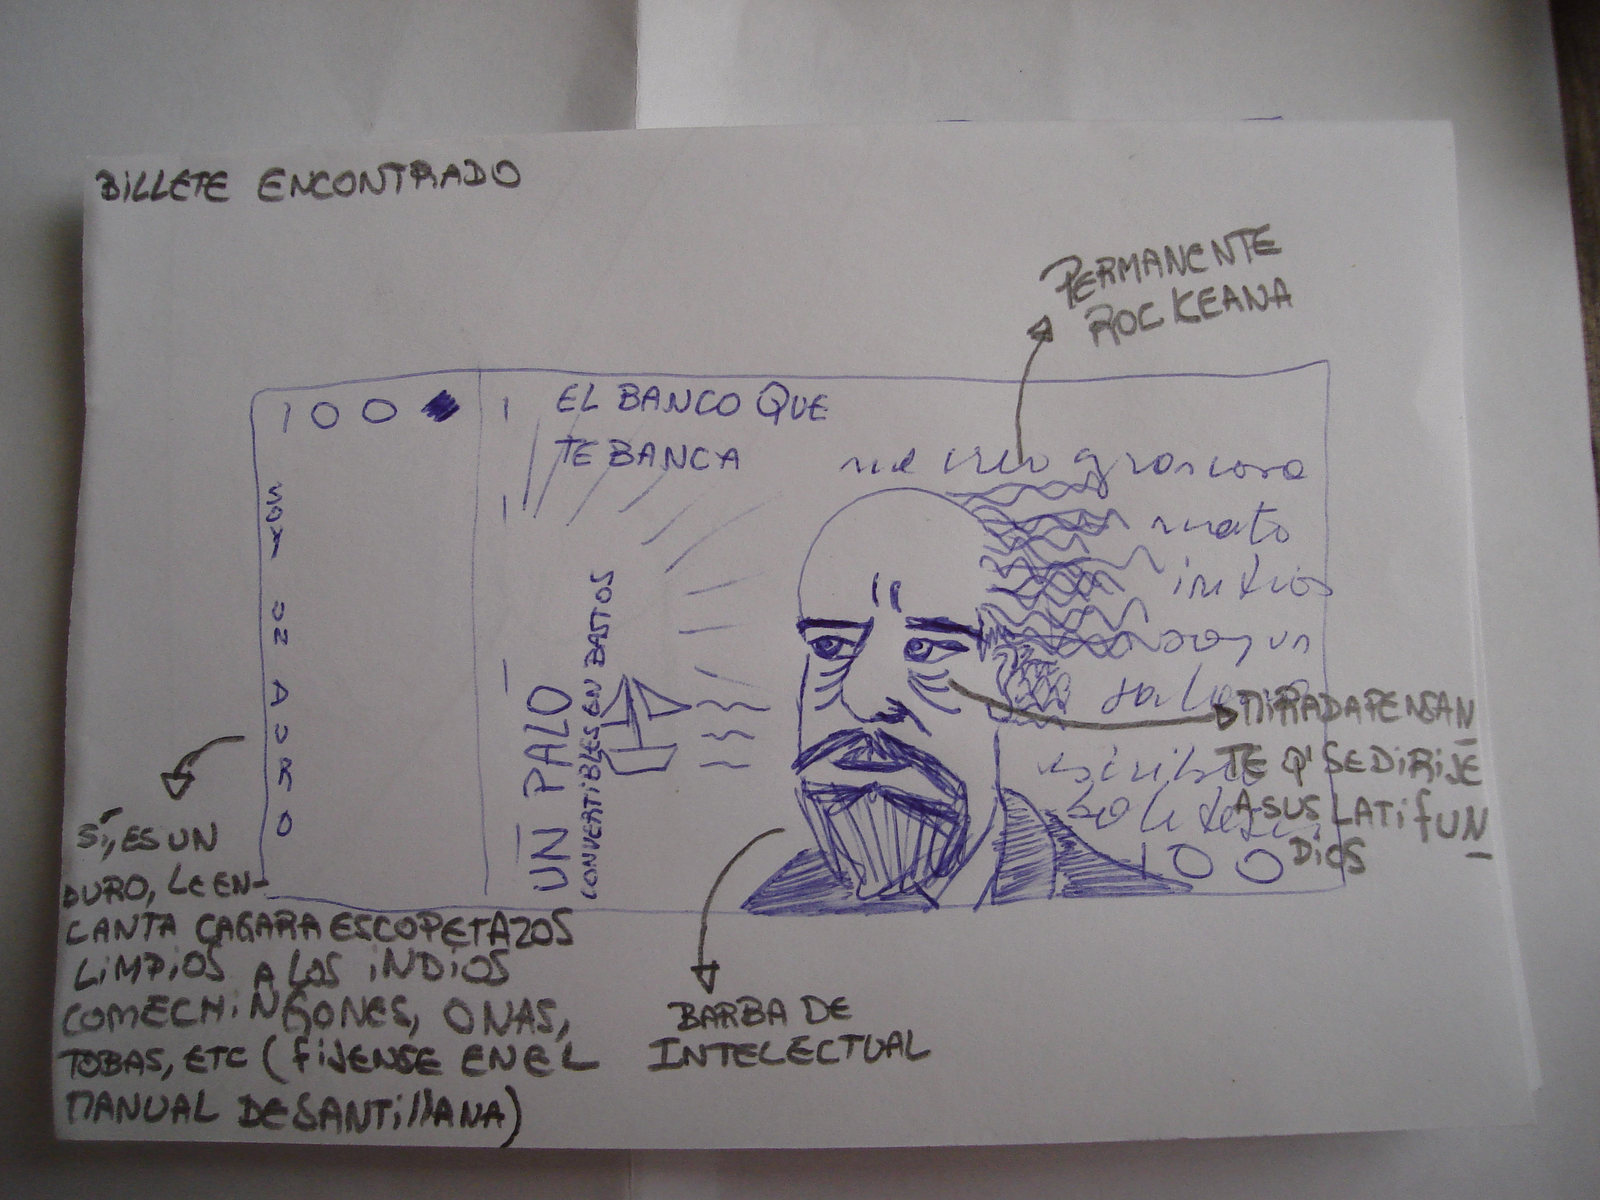 BILLETE ENCONTRADO
PERMANENTE
ROCKEANA
100
1
EL BANCO QUE
TE BANCA
me creo grosoro
mato
indios
soy un
100
SOY UN DURO
UN PALO
CONVERTIBLES EN BASTOS
MIRADA PENSAN
TE Q' SE DIRIJE
A SUS LATIFUN
DIOS
SÍ, ES UN
DURO, LE EN-
CANTA CAGAR A ESCOPETAZOS
LIMPIOS A LOS INDIOS
COMECHINGONES, ONAS,
TOBAS, ETC (FIJENSE EN EL
MANUAL DE SANTILLANA)
BARBA DE
INTELECTUAL